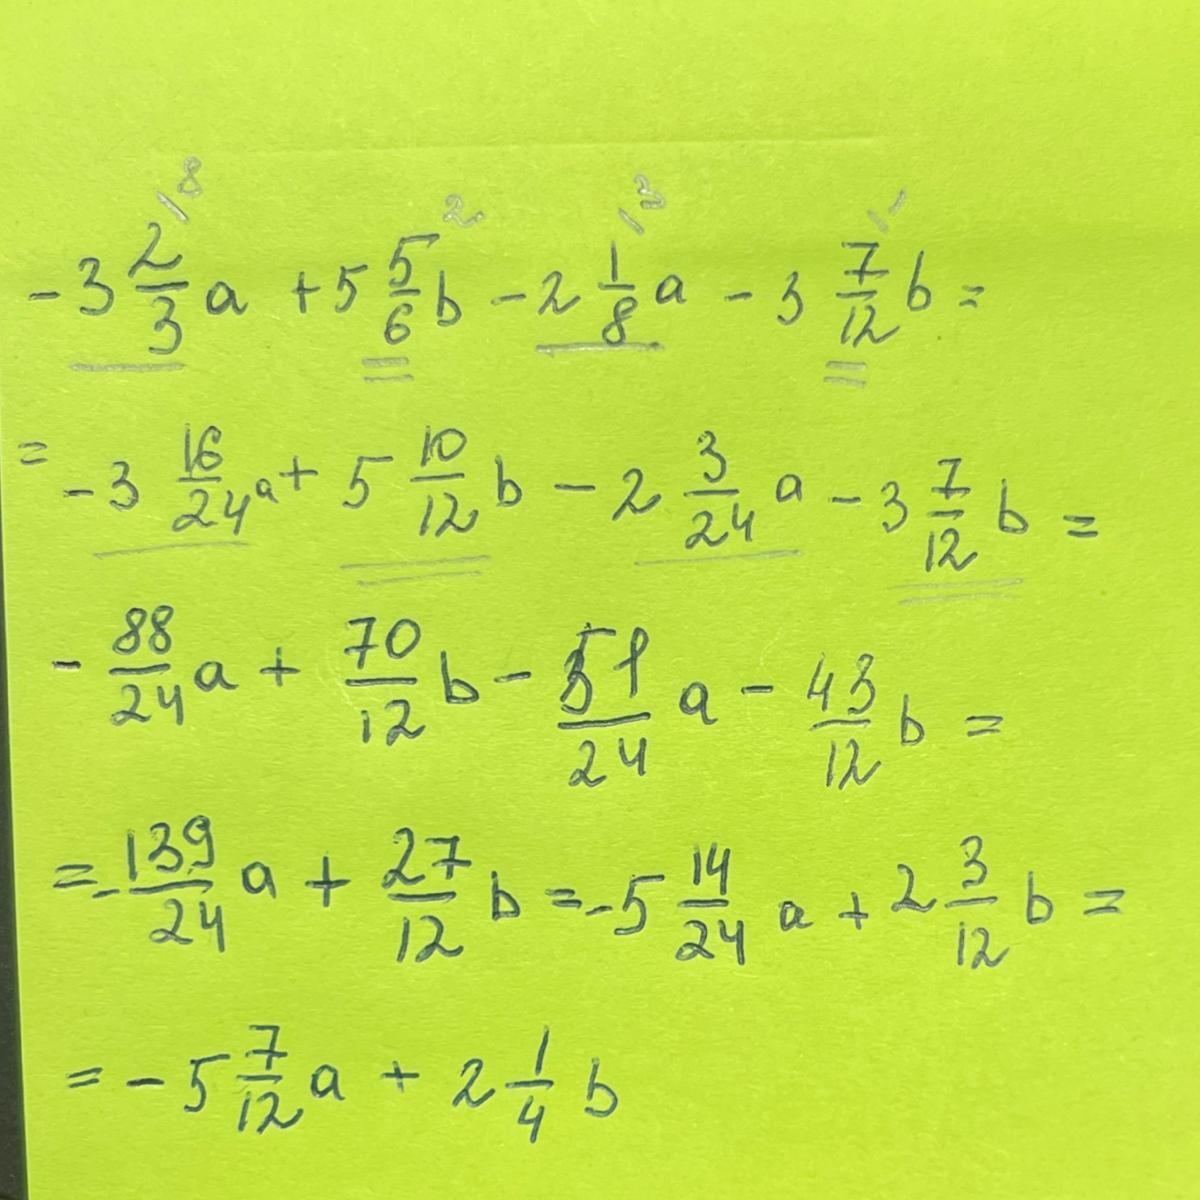 8 2 3 1
-3 2/3 a + 5 5/6 b - 2 1/8 a - 3 7/12 b =
= -3 16/24 a + 5 10/12 b - 2 3/24 a - 3 7/12 b =
- 88/24 a + 70/12 b - 51/24 a - 43/12 b =
= - 139/24 a + 27/12 b = -5 14/24 a + 2 3/12 b =
= -5 7/12 a + 2 1/4 b